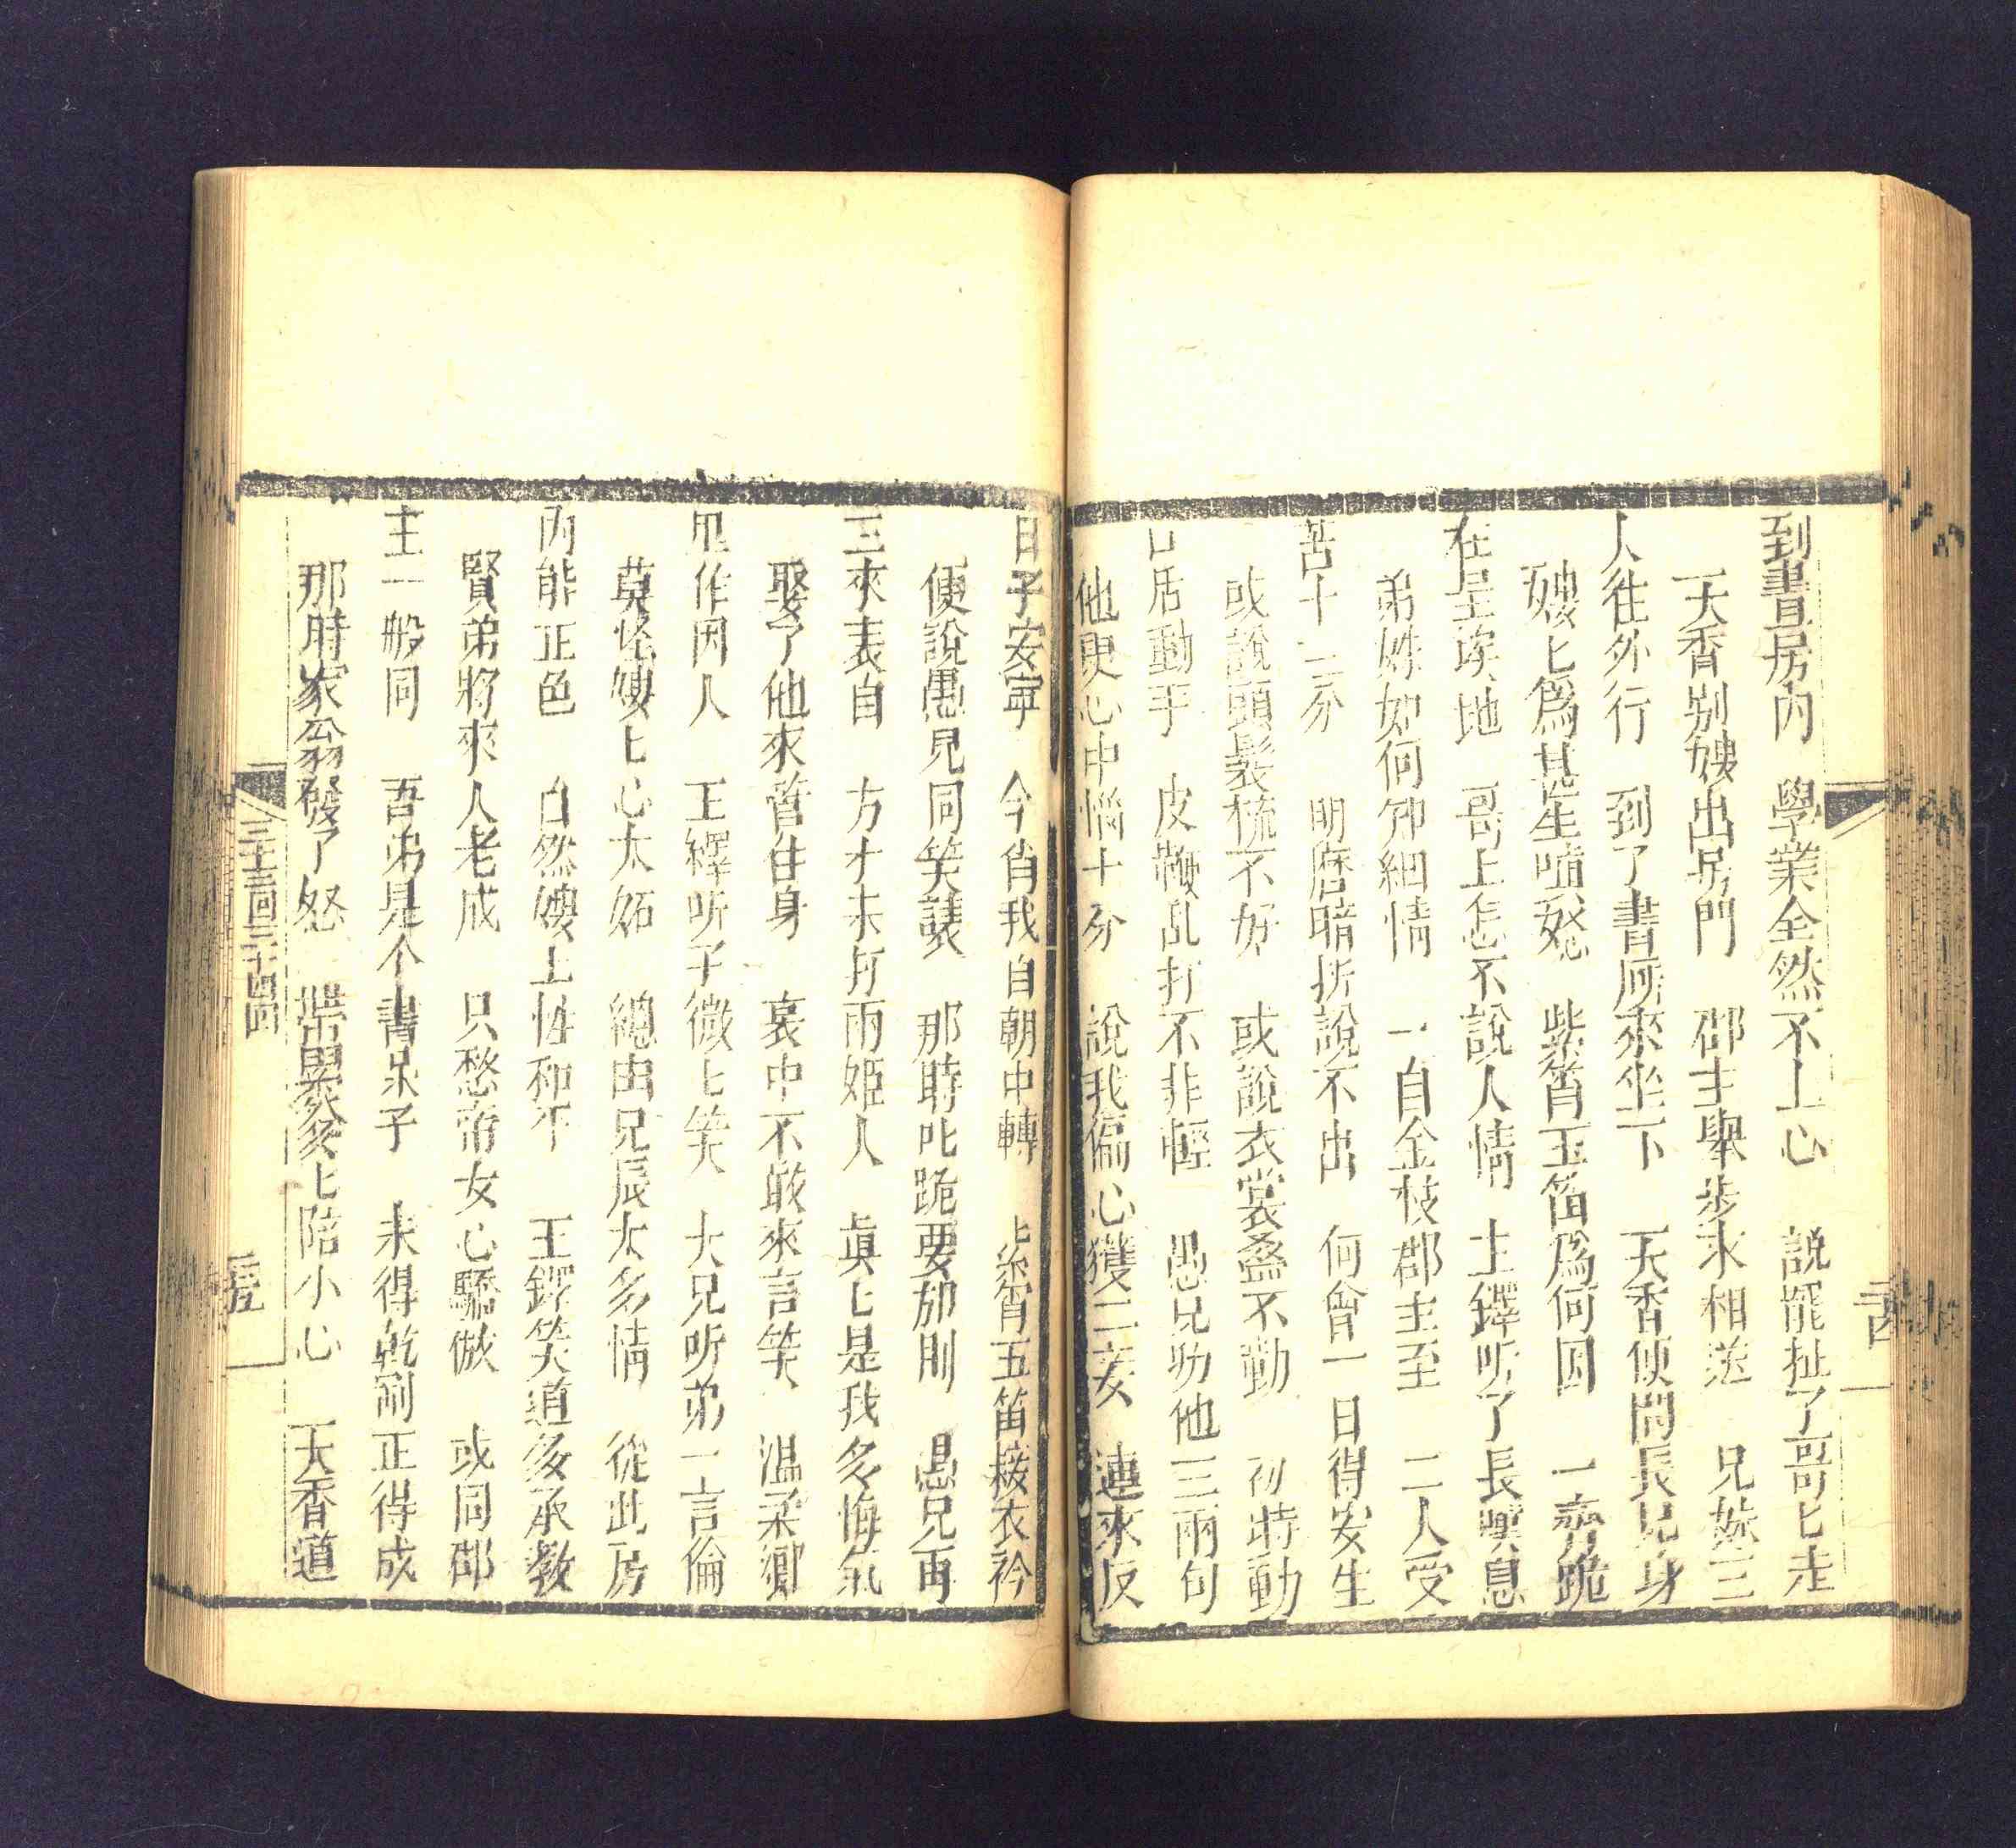 到書房內　學業全然不上心　説罷扯了哥匕走
天香别嫂出房門　郡主舉步來相送　兄妹三
人往外行　到了書房來坐下　天香便問長兄身
嫂匕爲甚生嗔怒　紫筲玉笛爲何因　一齊跪
在呈埃地　哥上怎不說人情　王鐸听了長嘆息
弟妹如何知細情　一自金枝郡主至　二人受
苦十二分　明磨暗折說不出　何曾一日得安生
或說頭髮梳不好　或說衣裳叠不勤　動
口居動手　皮鞭乱打不非輕　愚兄劝他三兩句
他更心中惱十分　說我偏心獲二妾　連來反
日子安寜　今肖我自朝中轉　紫筲玉笛接衣衿
便說愚兄同笑謔　那時叱跪要刑　愚兄再
三來表白　方才未打兩姬人　眞匕是我多悔氣
娶了他來管住身　裏中不敢來言笑　温柔鄉
作因人　王繹听了微匕笑　大兄听弟一言倫
莫怪嫂匕心太妬　總由兄辰太多情　從此房
内能正色　自然嫂上性和平　王鐸笑道多承教
賢弟將來人老成　只愁帝女心驕傲　或同郡
主一般同　吾弟是个書呆子　未得乾剛正得成
那時家翁發了怒　帶累爹匕陪小心　天香道
三十三回三十四回